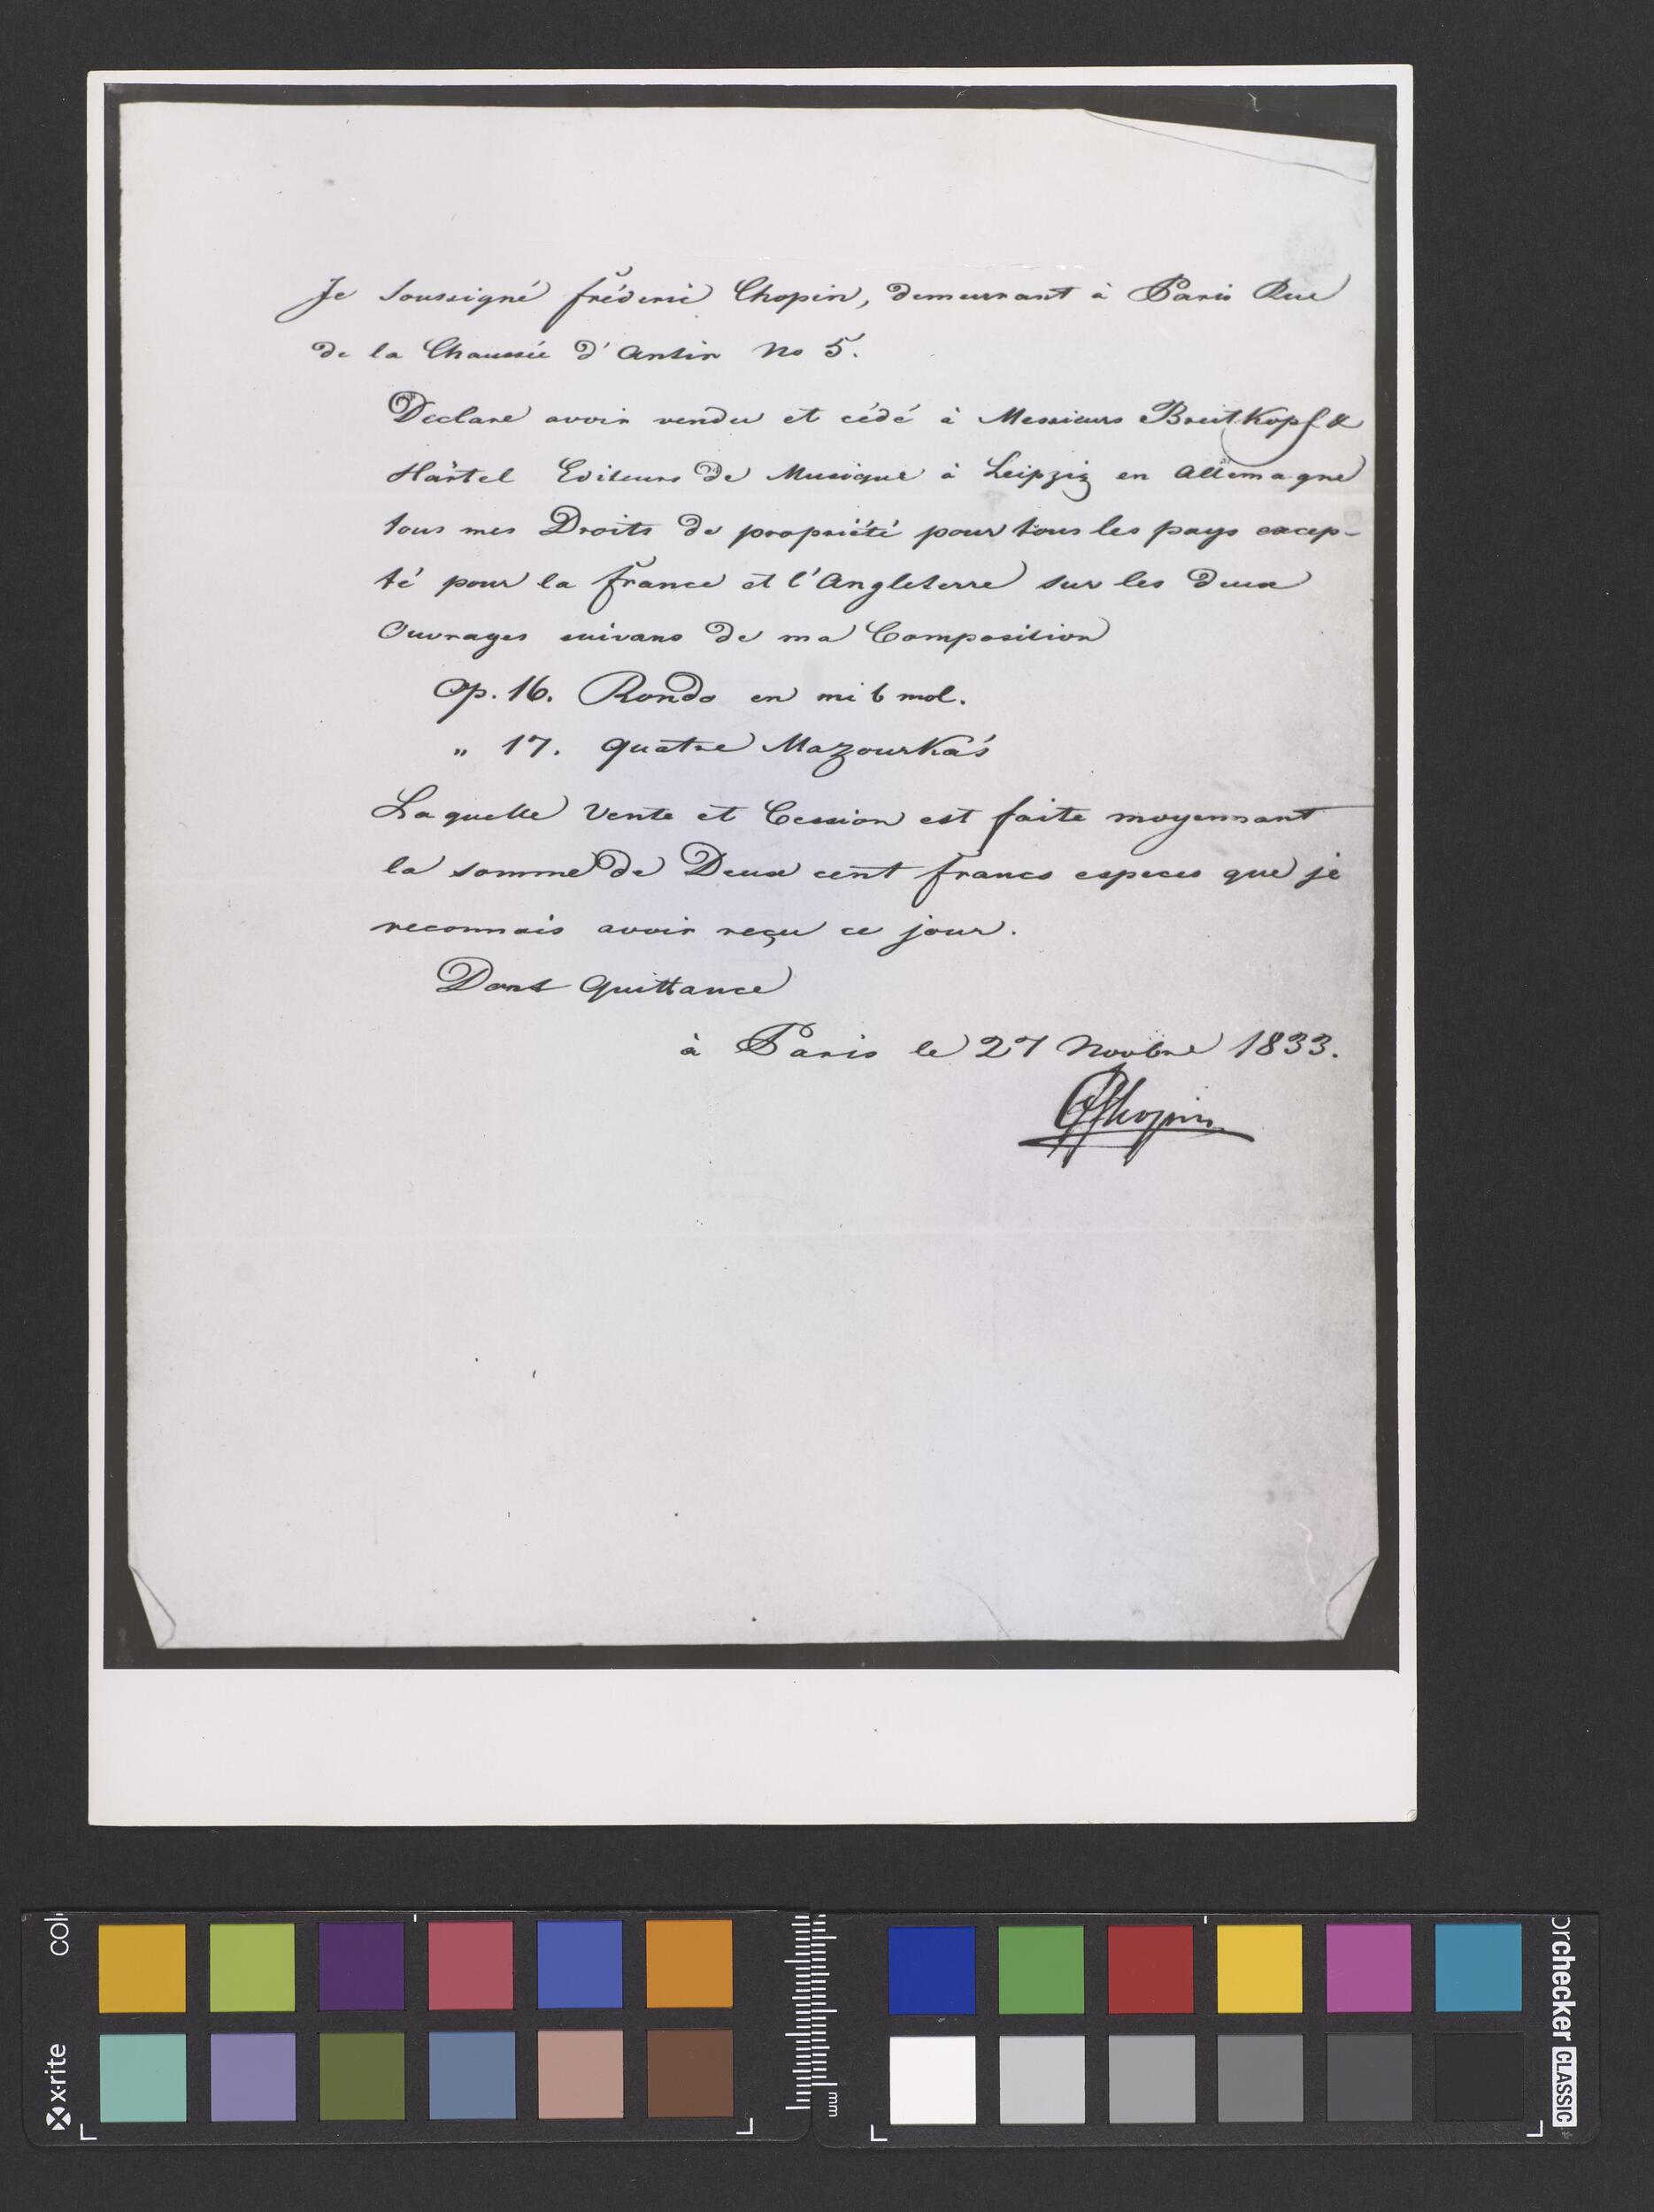 Je soussigné fréderic Chopin, demeurrant à Paris Rue
de la Chaussée d'Antin No 5.
Declare avoir vendu et cédé à Messieurs Breitkopf &
Härtel Editeurs de Musique à Leipzig en Allemagne
tous mes Droits de propriété pour tous les pays excep-
té pour la france et l'Angleterre sur les deux
Ouvrages suivans de ma Composition
Op. 16. Rondo en mi b mol.
" 17. quatre Mazourka's
Laquelle Vente et Cession est faite moyennant
la somme de Deux cent francs especes que je
reconnais avoir reçu ce jour.
Dont Quittance
à Paris le 27 Novbre 1833.
FChopin
col
x-rite
mm
orchecker CLASSIC